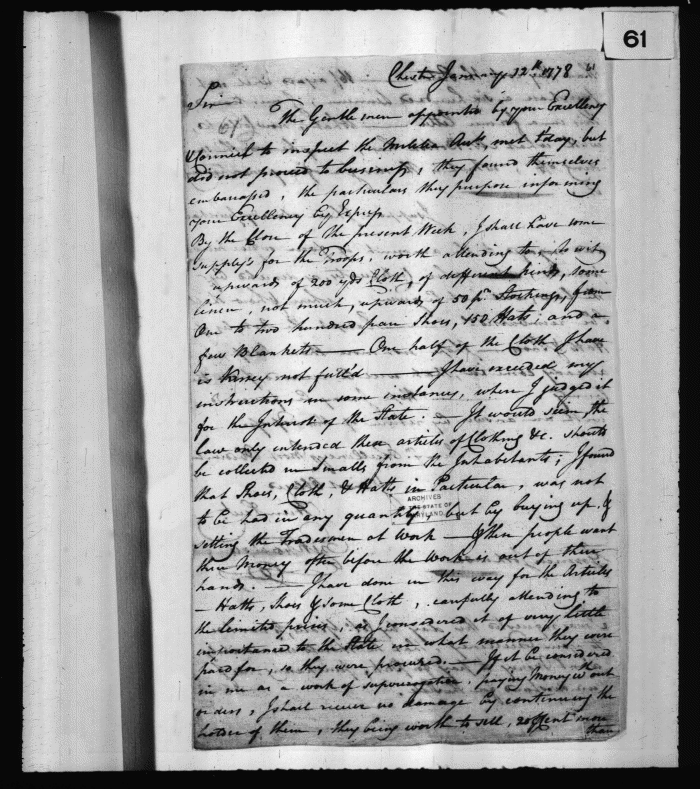 61
61
Chester January 12th 1778
Sir
The Gentlemen appointed by your Excellency
& Council to inspect the Militia Acts, met today, but
did not proceed to business, they found themselves
embarrassed, the particulars they purpose informing
your Excellency by Express
By the Close of the present Week, I shall have some
supply's for the Troops, worth attending to, to wit
upwards of 200 yds Cloth, of different kinds, some
linen, not much, upwards of 50 pr. Stockings, from
One to two hundred pair Shoes, 150 Hatts, and a
few Blankets — One half of the Cloth I have
is Kersey not full'd — I have exceeded my
instructions in some instances, where I judged it
for the Interest of the State. — It would seem, the
Law only intended these articles of Clothing &c. should
be collected in Smalls from the Inhabitants; I found
that Shoes, Cloth, & Hatts in Particular, was not
to be had in any quantity, but by buying up, &
setting the Tradesmen at Work — & these people want
their Money often before the Work is out of their
hands. — I have done in this way for the Articles
— Hatts, Shoes & some Cloth, carefully attending to
the limited prices, as I considered it of very little
importance to the State in what manner they were
paid for, so they were procured. — If it be considered
in me as a work of supererogation, paying Money without
orders, I shall receive no damage by continuing the
holder of them, they being worth to sell, 20 Cent more
than
ARCHIVES
THE STATE OF
MARYLAND